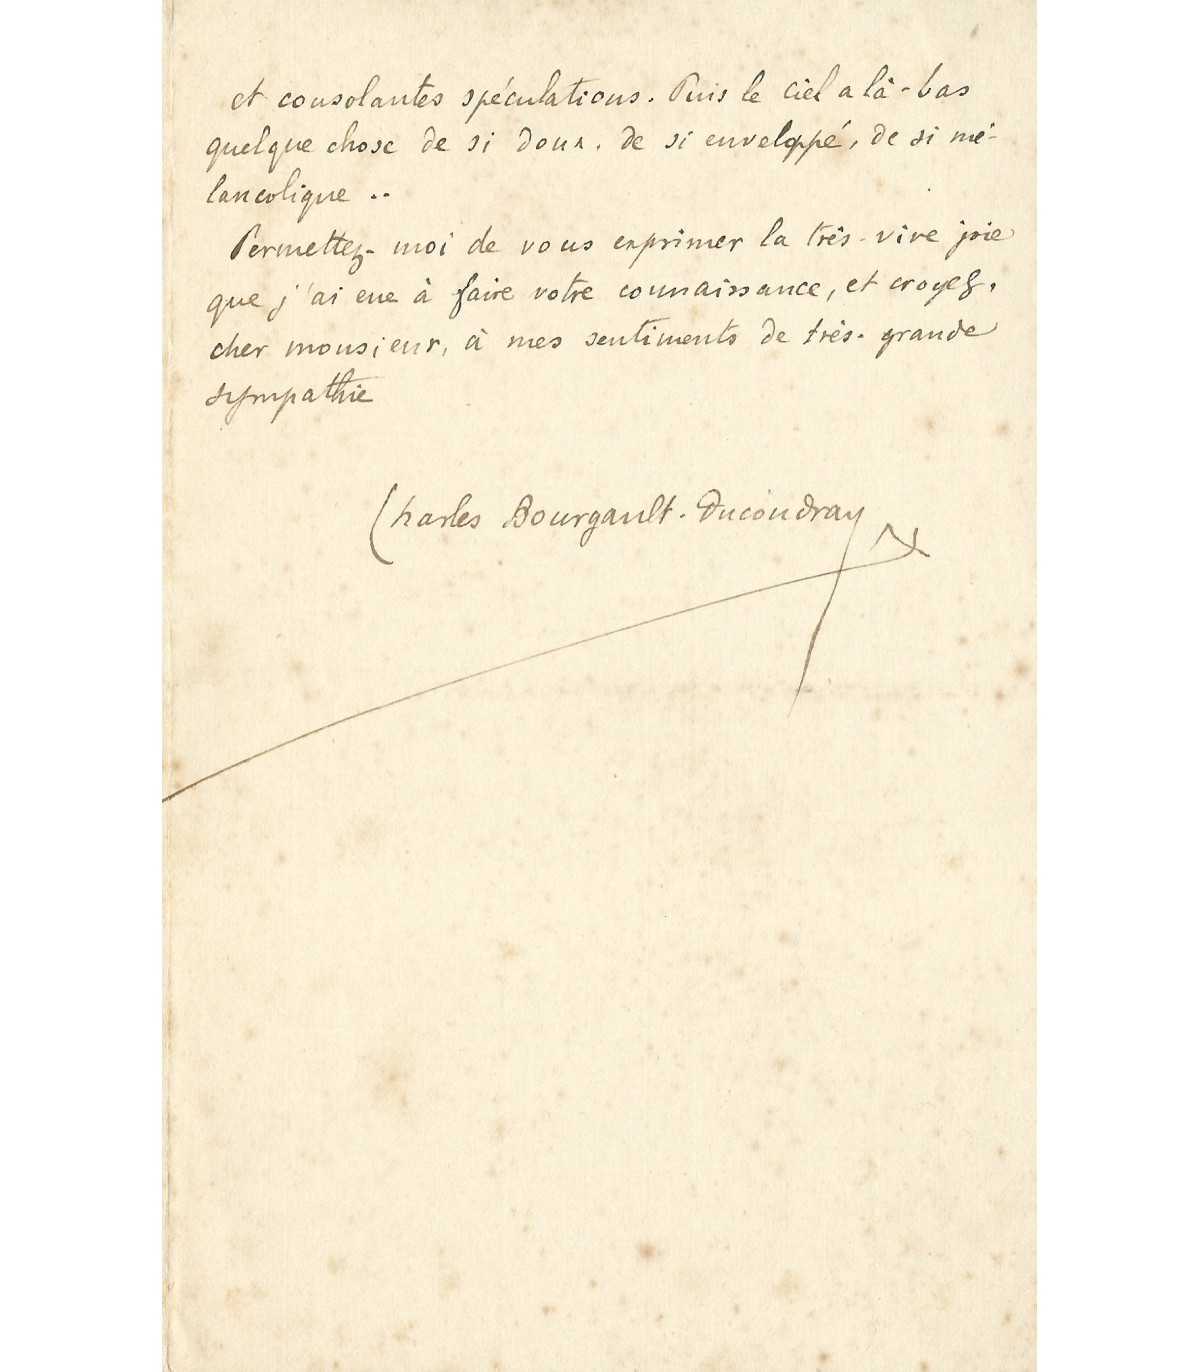 et consolantes spéculations. Puis le ciel a là-bas
quelque chose de si doux, de si enveloppé, de si mé-
lancolique ..
Permettez-moi de vous exprimer la très-vive joie
que j'ai eue à faire votre connaissance, et croyez,
cher monsieur, à mes sentiments de très-grande
sympathie
Charles Bourgault-Ducoudray